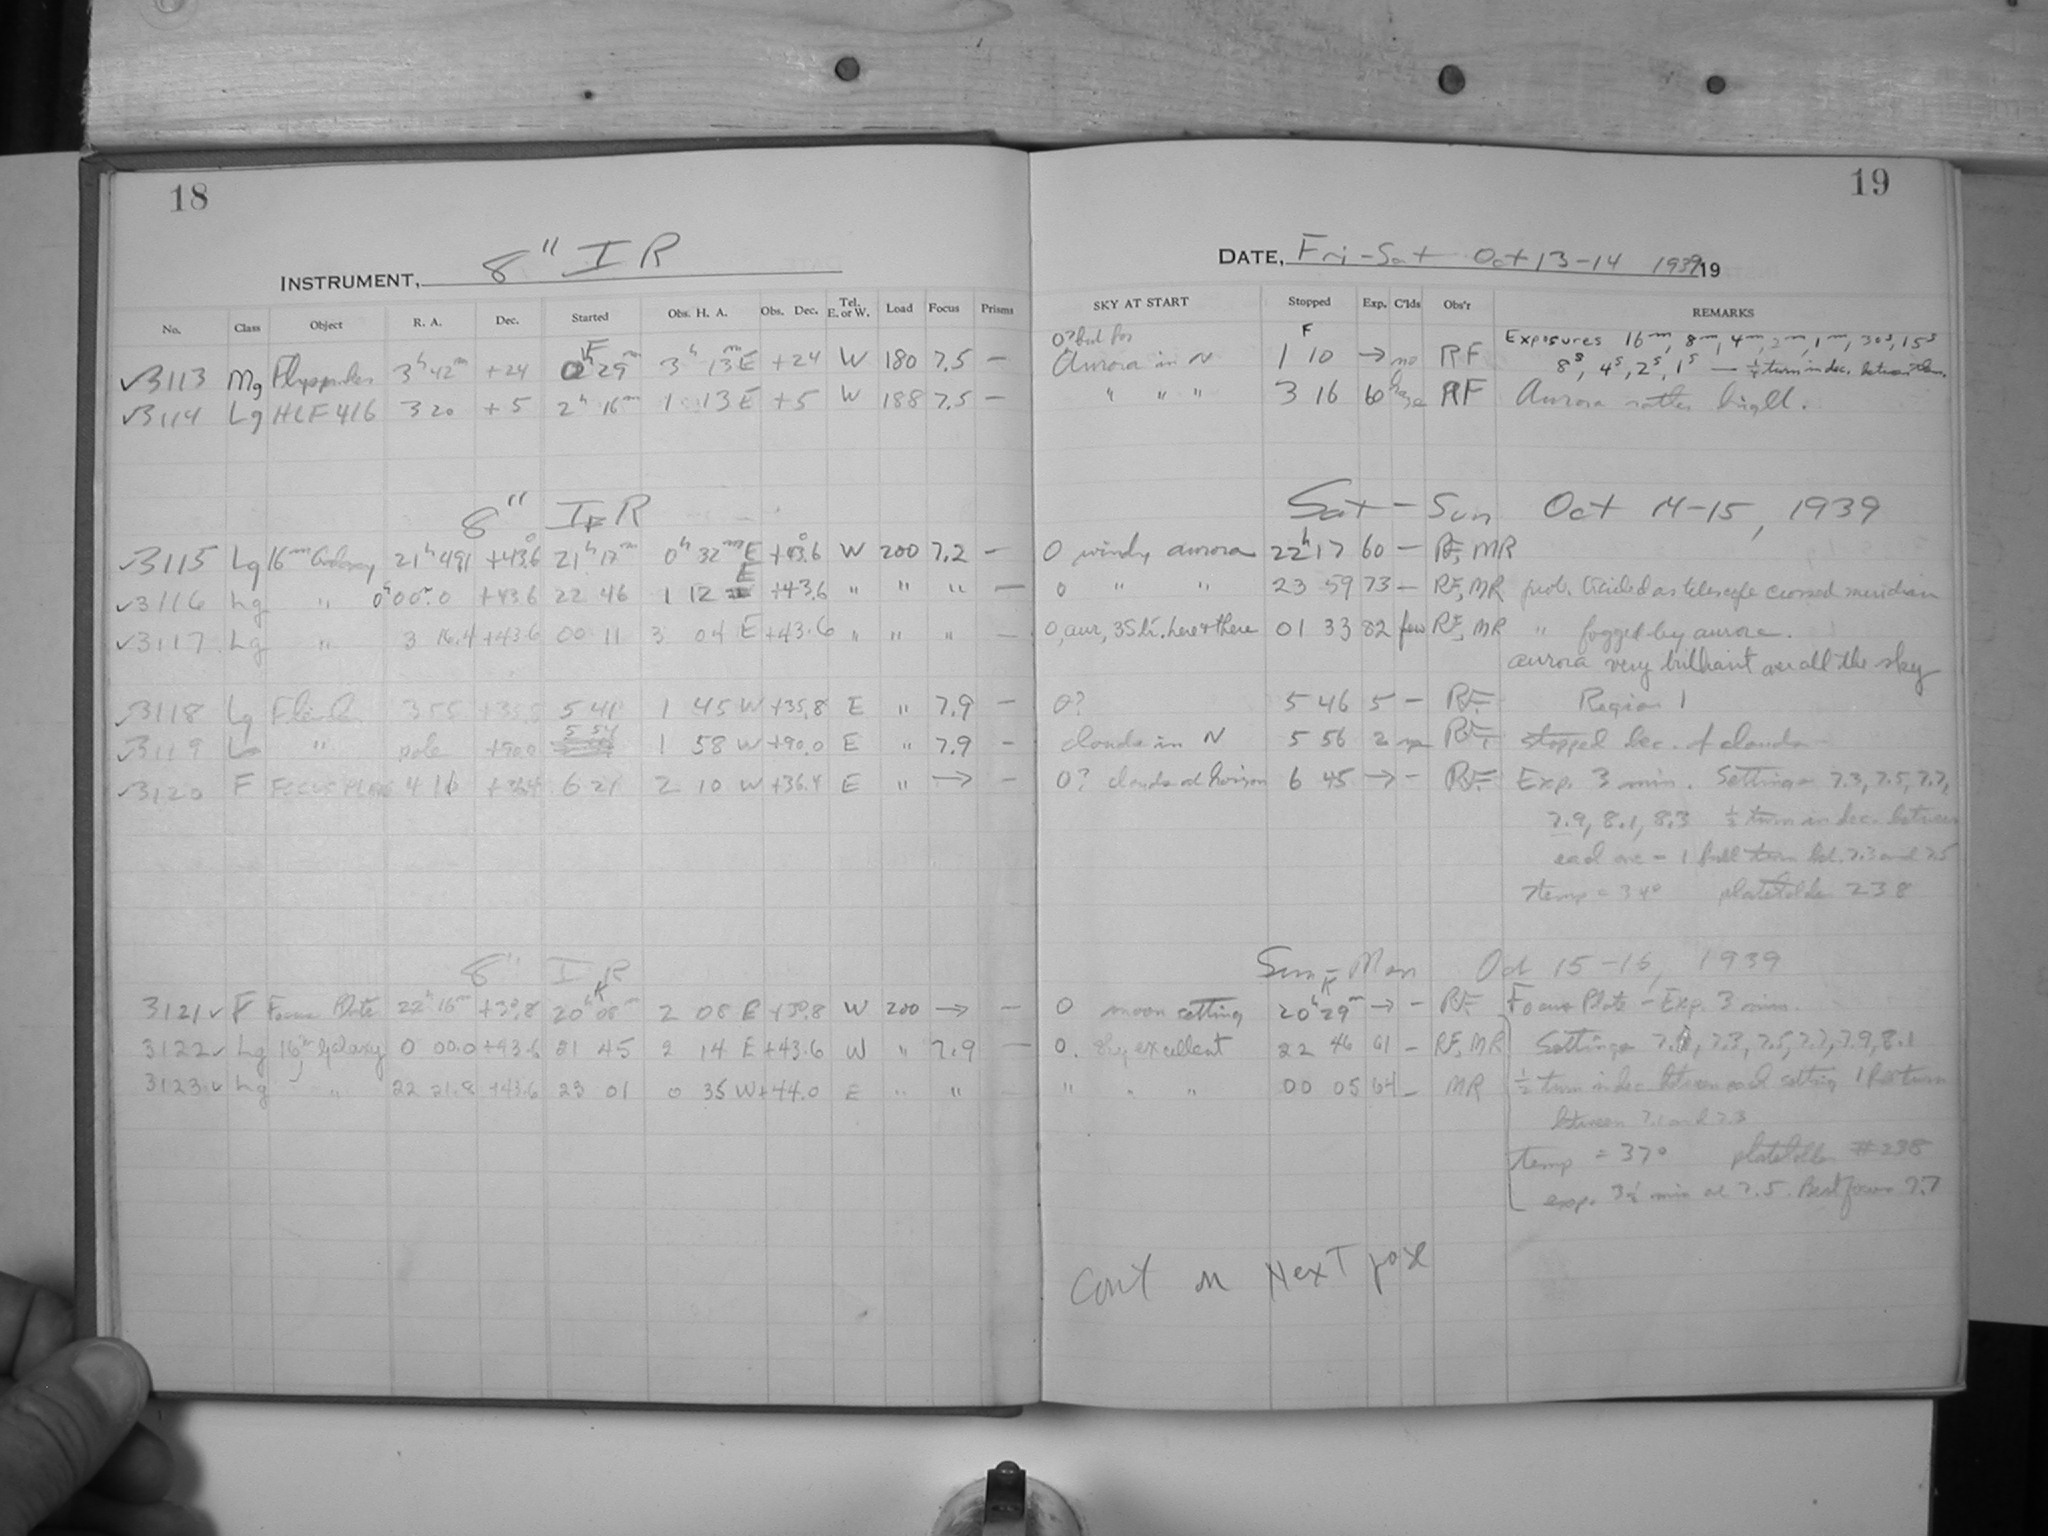 18
19
INSTRUMENT, 8" I R
DATE, Fri-Sat Oct 13-14 1939 19
No. Class Object R. A. Dec. Started Obs. H. A. Obs. Dec. Tel. E. or W. Load Focus Prisms SKY AT START Stopped Exp. C'lds Obs'r REMARKS
✓3113 Mg 3h 42m +24 29m 3h 13m E +24 W 180 7.5 — 0? but for Aurora in N 1 10 → no RF Exposures 16m, 8m, 4m, 2m, 1m, 30s, 15s
8s, 4s, 2s, 1s — ½ turn in dec. between them.
✓3114 Lg HLF 416 3 20 +5 2h 16m 1 13 E +5 W 188 7.5 — " " " 3 16 60 haze RF Aurora rather bright.
8" I R Sat - Sun Oct 14-15, 1939
✓3115 Lg 16m Galaxy 21h 49.1 +43.6 21h 17m 0h 32m E +43.6 W 200 7.2 — 0 windy aurora 22h 17 60 — RF, MR
✓3116 Lg " 0h 00m.0 +43.6 22 46 1 12 E +43.6 " " " — 0 " " 23 59 73 — RF, MR prob. as telescope crossed meridian
✓3117 Lg " 3 16.4 +43.6 00 11 3 04 E +43.6 " " " — 0, aur, here & there 01 33 82 few RF, MR " fogged by aurora.
aurora very brilliant over all the sky
✓3118 Lg 3 55 +35.8 5 41 1 45 W +35.8 E " 7.9 — 0? 5 46 5 — RF Region 1
✓3119 " pole +90.0 5 54 1 58 W +90.0 E " 7.9 — clouds in N 5 56 2 RF, stopped bec. of clouds
✓3120 F FOCUS PLATE 4 16 +36.4 6 21 2 10 W +36.4 E " → — 0? clouds at horizon 6 45 → — RF Exp. 3 min. Settings 7.3, 7.5, 7.7,
7.9, 8.1, 8.3 ½ turn in dec. between
each one – 1 full turn bet. 7.3 and 7.5
Temp = 34° plateholder 238
8" I R Sun - Mon Oct 15-16, 1939
3121✓ F Focus Plate 22h 16m +39.8 20h 08m 2 08 E +39.8 W 200 → — 0 moon setting 20h 29m → — RF Focus Plate – Exp. 3 min.
3122✓ Lg 16m Galaxy 0 00.0 +43.6 21 45 2 14 E +43.6 W " 7.9 — 0. sky excellent 22 46 61 — RF, MR Settings 7.1, 7.3, 7.5, 7.7, 7.9, 8.1
3123✓ Lg " 22 21.8 +43.6 23 01 0 35 W +44.0 E " " — " " " 00 05 64 — MR ½ turn in dec. between each setting 1 full turn
between 7.1 and 7.3
temp = 37° plateholder #238
exp. 3½ min at 7.5. Best focus 7.7
Cont on Next page